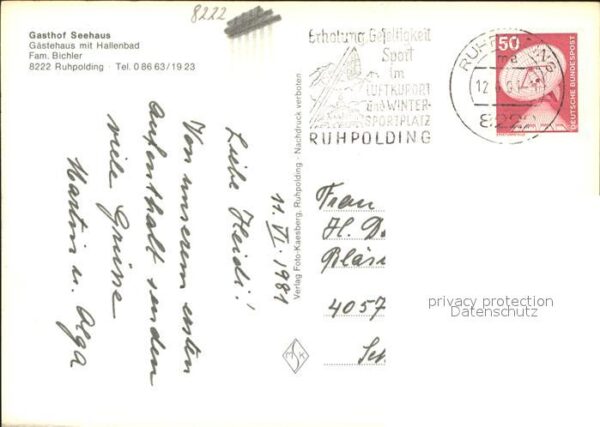 8222
Gasthof Seehaus
Gästehaus mit Hallenbad
Fam. Bichler
8222 Ruhpolding · Tel. 0 86 63 / 19 23
Erholung Geselligkeit
Sport
im
LUFTKURORT
und WINTER-
SPORTPLATZ
RUHPOLDING
RUHPOLDING
12
8222
50
DEUTSCHE BUNDESPOST
Verlag Foto-Kaesberg, Ruhpolding · Nachdruck verboten
11. VI. 1981
Liebe Heidi!
Von unserem ersten
Aufenthalt senden
viele Grüsse
Martin u.
Frau
H.
4057
privacy protection
Datenschutz